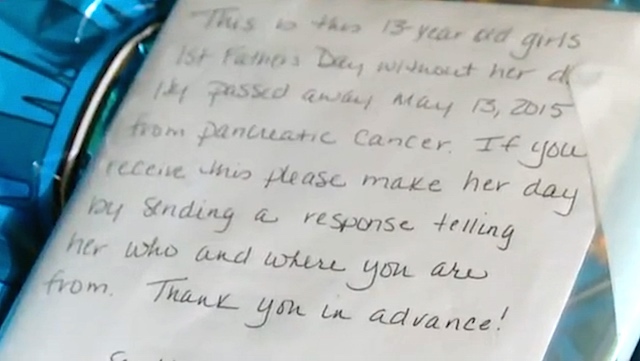 This is this 13-year old girls
1st Fathers Day without her
passed away May 13, 2015
from pancreatic cancer. If you
receive this please make her day
by sending a response telling
her who and where you are
from. Thank you in advance!